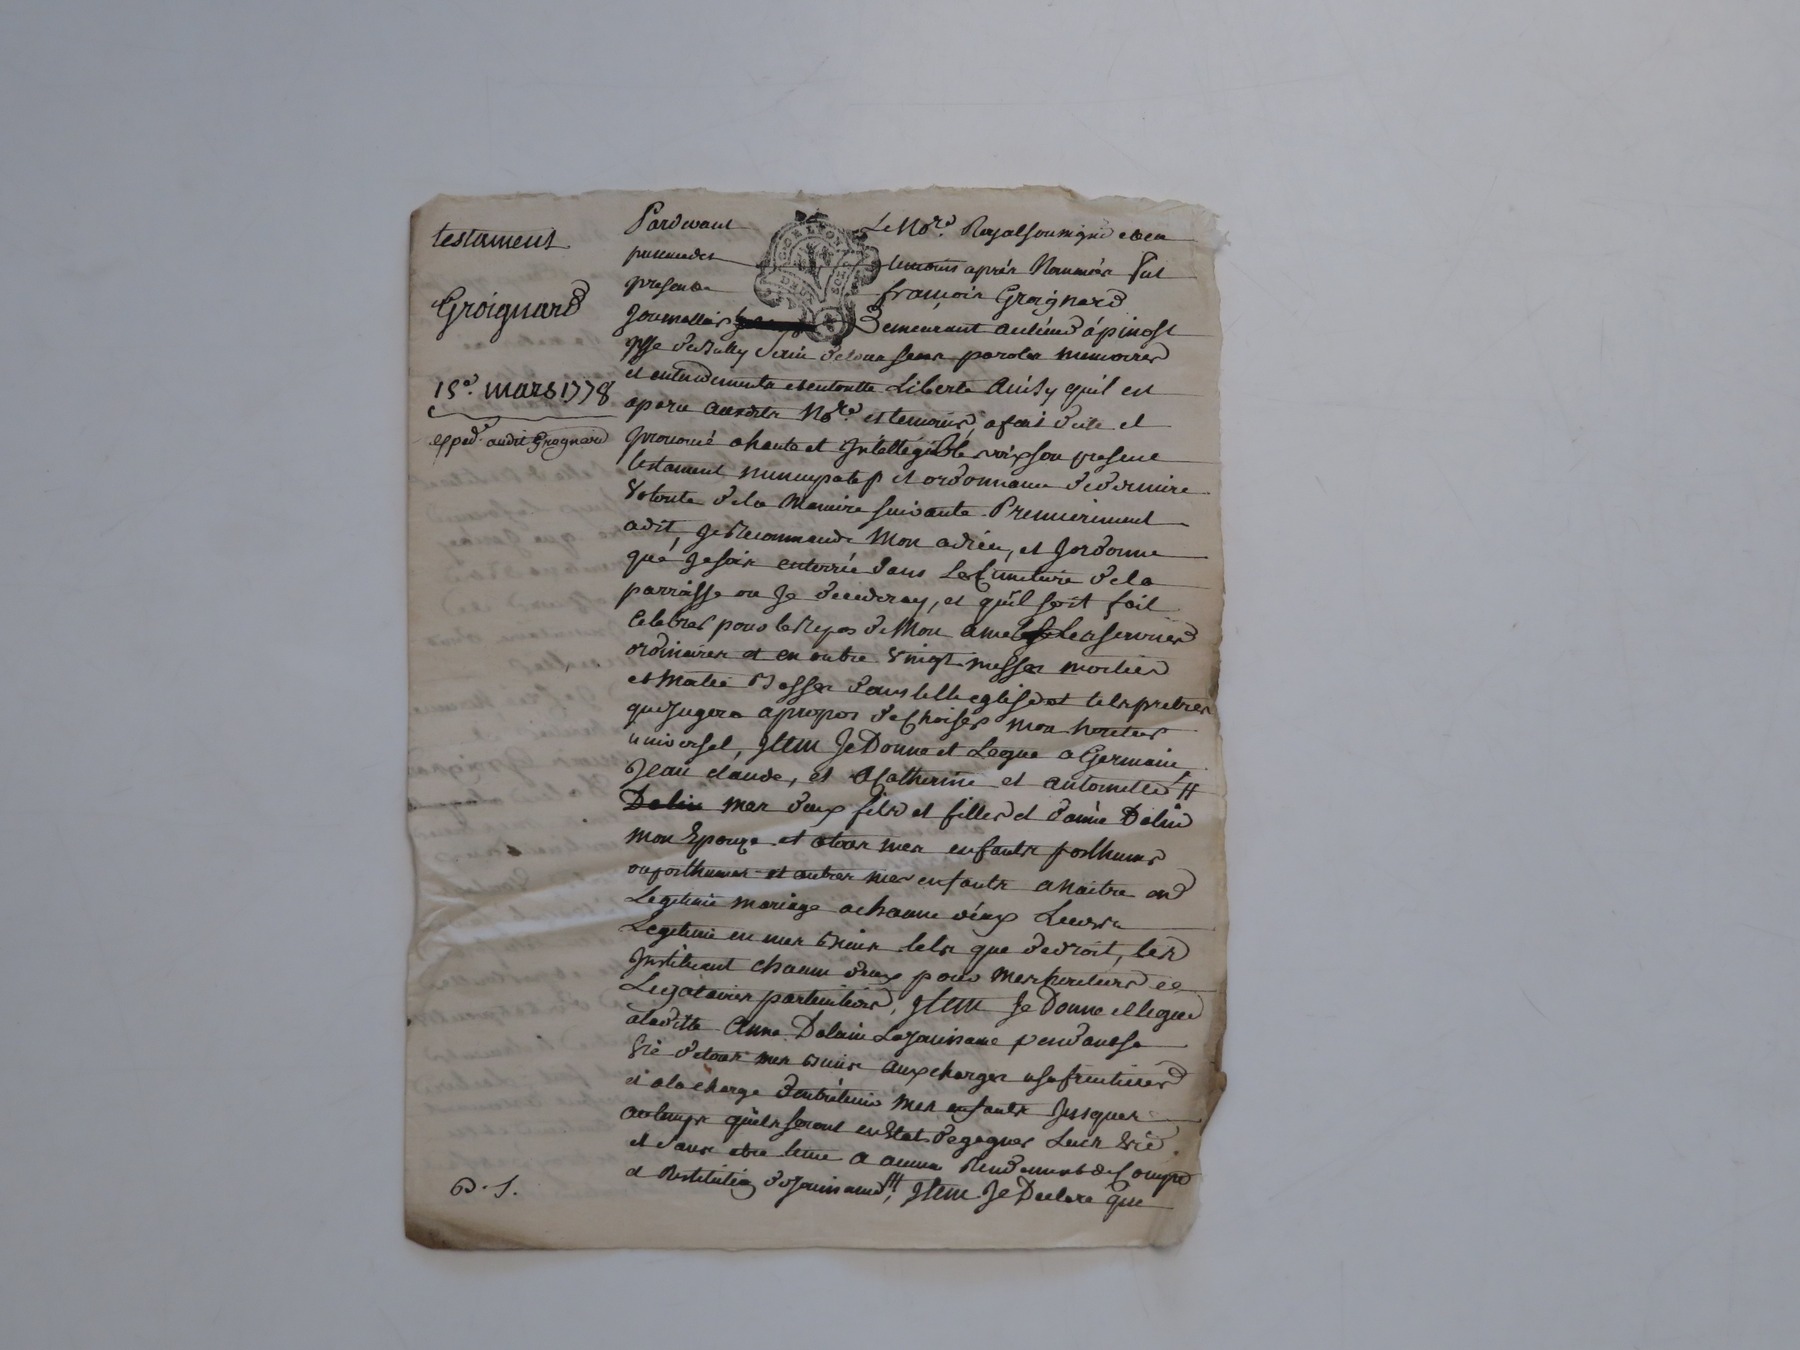 testament
Groignard
15e. mars 1778
exped. audit Grognard
Pardevant Le No.re Royal soussigné et en
presence des temoins aprés Nommés fut
present françois Groignard
Journallier Demeurant au lieu d'épinost
psse de Bully sain de tous sens parole memoires
et entendements et en toutte Liberté Ainsy qu'il est
aparu auxdits No.re et temoins, a fait dicte et
prononcé a haute et Intelligible voix son present
testament nuncupatif et ordonnance de derniere
Volonte de la Maniere suivante Premierement
a dit, Je Recommande Mon a dieu, et Jordonne
que Je sois enterrée dans Le Cimetiere de la
parroisse ou Je decederay, et quil soit fait
Celebrer pour le Repos de Mon ame Les services
ordinaires et en outre Vingt messes
Basses dans telle eglise et tels pretres
que Jugera a propos de Choisir mon heritier
universel, Item Je Donne et Legue a Germain
Jean claude, et a Catherine et antoinette #
Dolin mes deux fils et filles et d'anne Dolin
mon Epouze et a tous mes enfants posthumes
ou posthumes et autres mes enfants a Naitre en
Legitime mariage a chacun d'eux Leurs
Legitime en mes Biens tels que de droit, les
Instituant chacun d'eux pour Mes heritiers et
Legataires particuliers, Item Je Donne et legue
a laditte Anne Dolain La Jouissance pendant sa
Vie de tous mes Biens aux charges usufruitieres
et a la charge d'entretenir Mes enfants Jusques
au temps quils seront en Etat de gagner Leur Vie
et sans etre tenue a aucun Rendement de Compte
et Restitution de Jouissance, Item Je Declare que
GDE LYON
DEUX SOLS